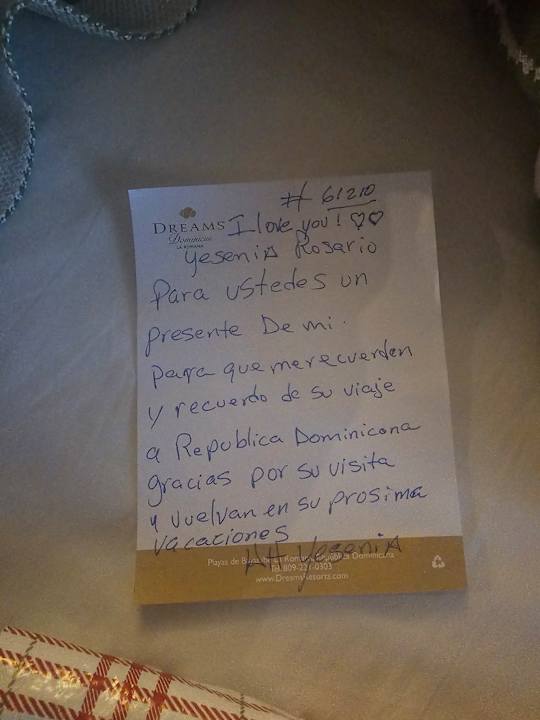 # 61210
DREAMS I love you! ♡♡
Dominicus
LA ROMANA
yesenia Rosario
Para ustedes un
presente De mi.
para que me recuerden
y recuerdo de su viaje
a Republica Dominicana
gracias por su visita
y vuelvan en su prosima
vacaciones
Att yesenia
Playas de La Romana, República Dominicana
Tel. 809-221-0303
www.DreamsResorts.com